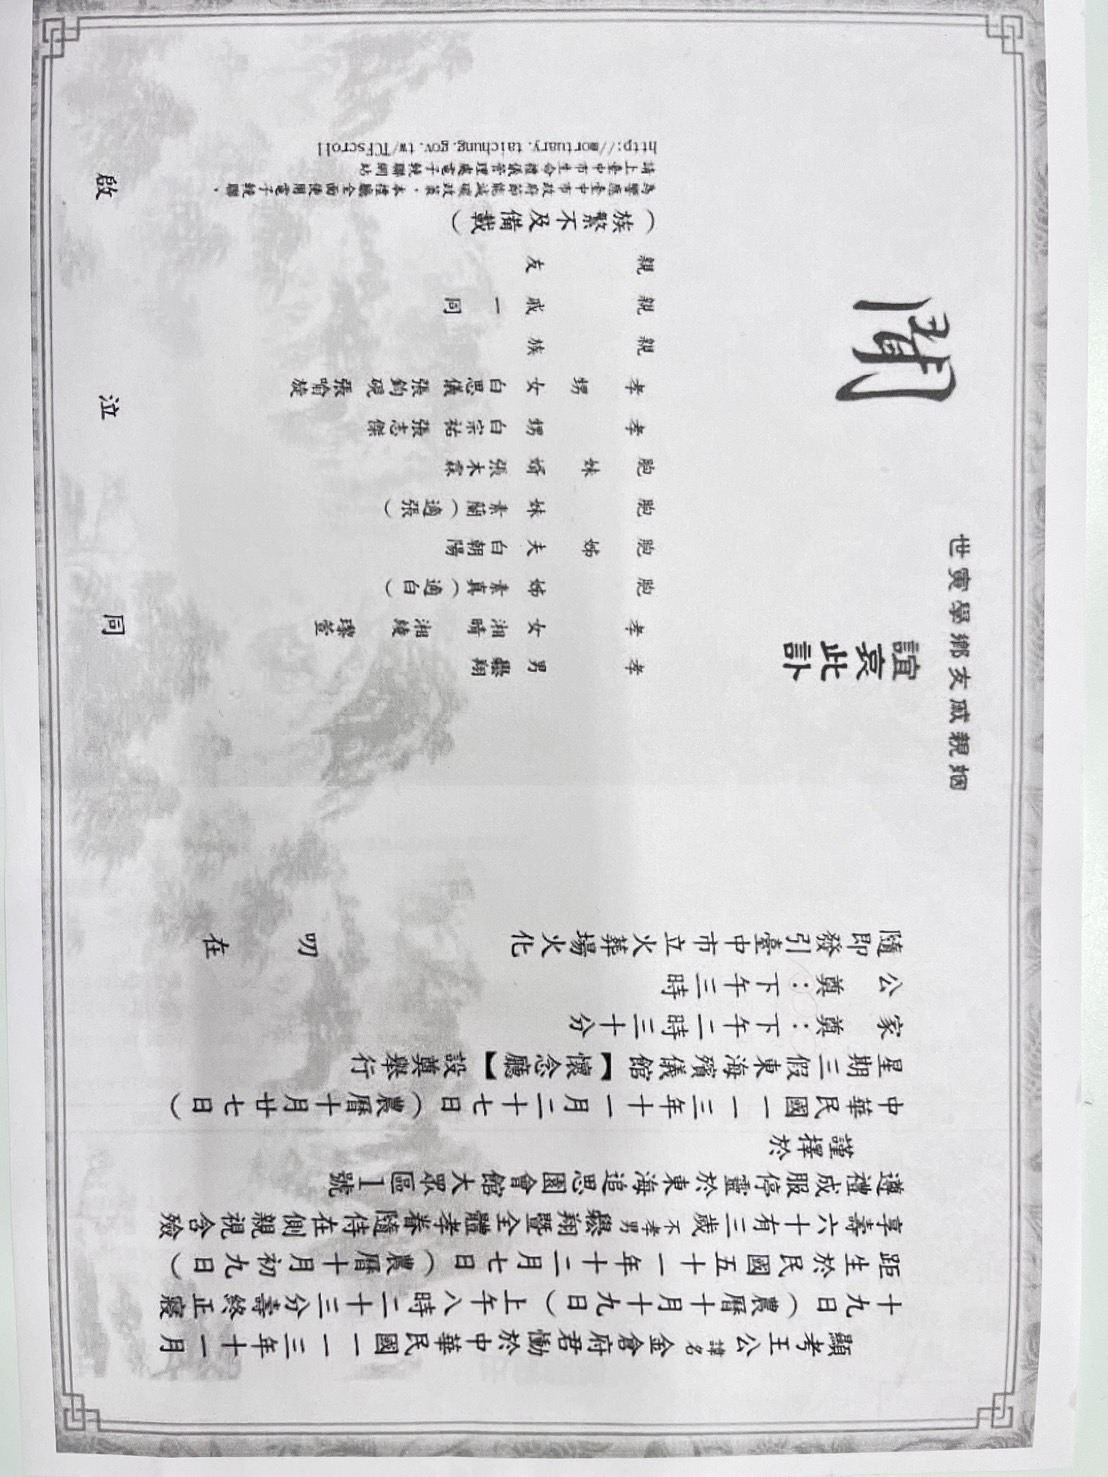 顯考王公諱名金倉府君慟於中華民國一一三年十一月
十九日（農曆十月十九日）上午八時二十三分壽終正寢
距生於民國五十一年十二月七日（農曆十月初九日）
享壽六十有三歲不孝男翔暨全體孝眷隨侍在側親視含殮
遵禮成服停靈於東海追思園會館大眾區1號
謹擇於
中華民國一一三年十一月二十七日（農曆十月廿七日）
星期三假東海殯儀館【懷念廳】設奠舉行
家奠：下午二時三十分
公奠：下午三時
隨即發引臺中市立火葬場火化
叨在
姻親戚友鄉學寅世
誼哀此訃
聞
孝男 翔
孝女 湘晴 湘綾 瓈萱
胞姊 素真（適白）
胞姊夫 白朝陽
胞妹 素蘭（適張）
胞妹婿 張木霖
孝甥 白宗祐 張志傑
孝甥女 白思儀 張鈞硯 張喻旋
親族
親戚一同
親友
（族繁不及備載）
為響應臺中市政府節能減碳政策，本禮廳全面使用電子輓聯，
請上臺中市生命禮儀管理處電子輓聯網站
http://mortuary.taichung.gov.tw/TCFscroll
同泣啟